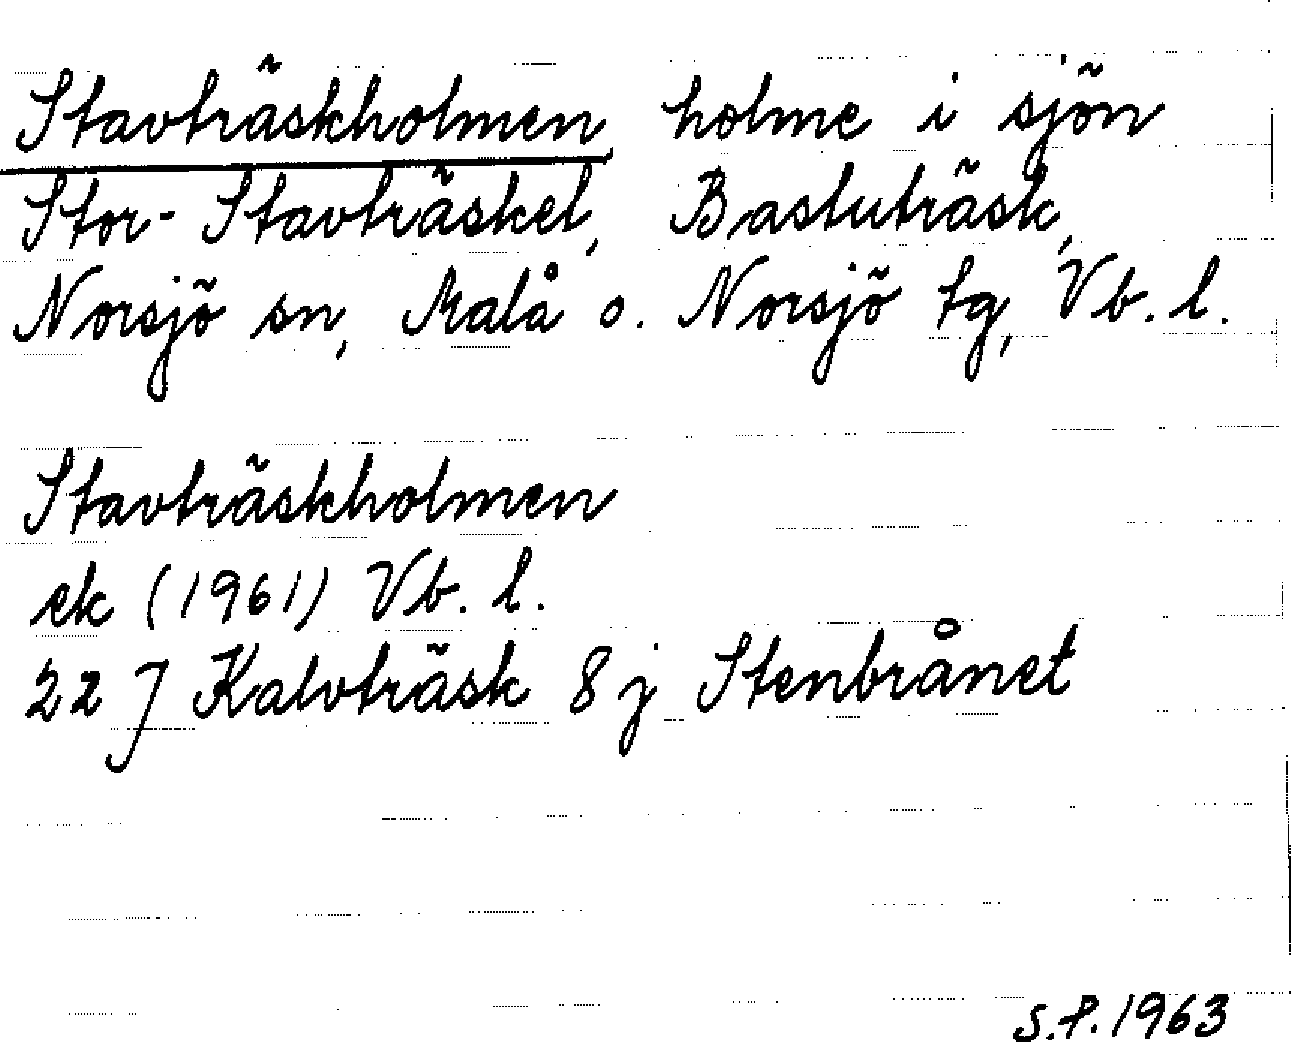 Stavträskholmen, holme i sjön
Stor-Stavträsket, Bastuträsk,
Norsjö sn, Malå o. Norsjö tg, Vb. l.
Stavträskholmen
ek (1961) Vb. l.
22 J Kalvträsk 8 j Stenbrånet
S.P. 1963